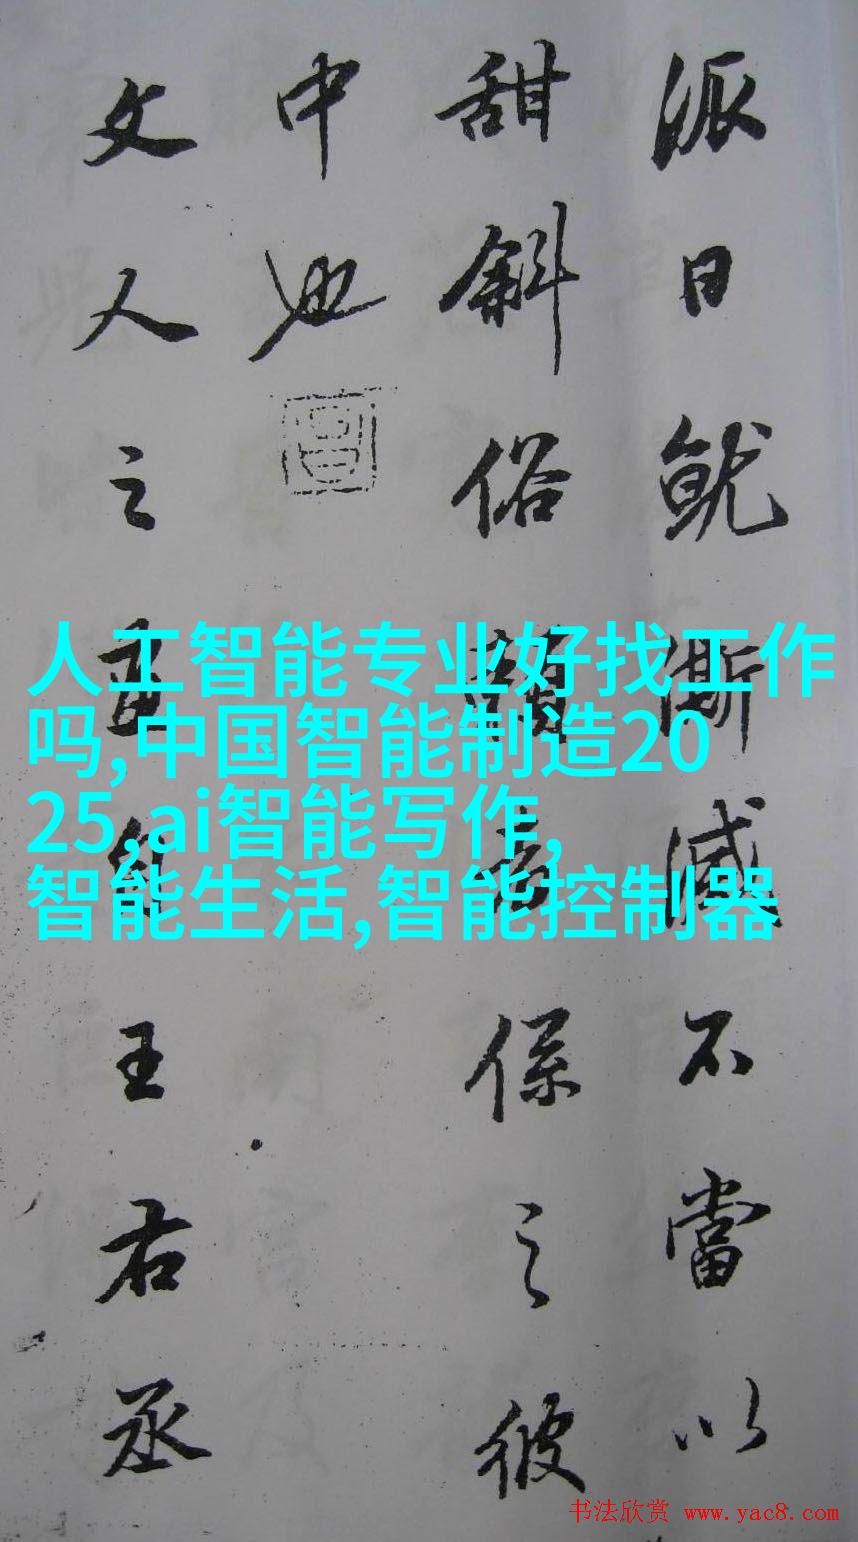 派日就澌滅不當以
甜斜俗賴者係之彼
中也
文人之畫自王右丞
人工智能专业好找工作
吗,中国智能制造20
25,ai智能写作,
智能生活,智能控制器
书法欣赏 www.yac8.com